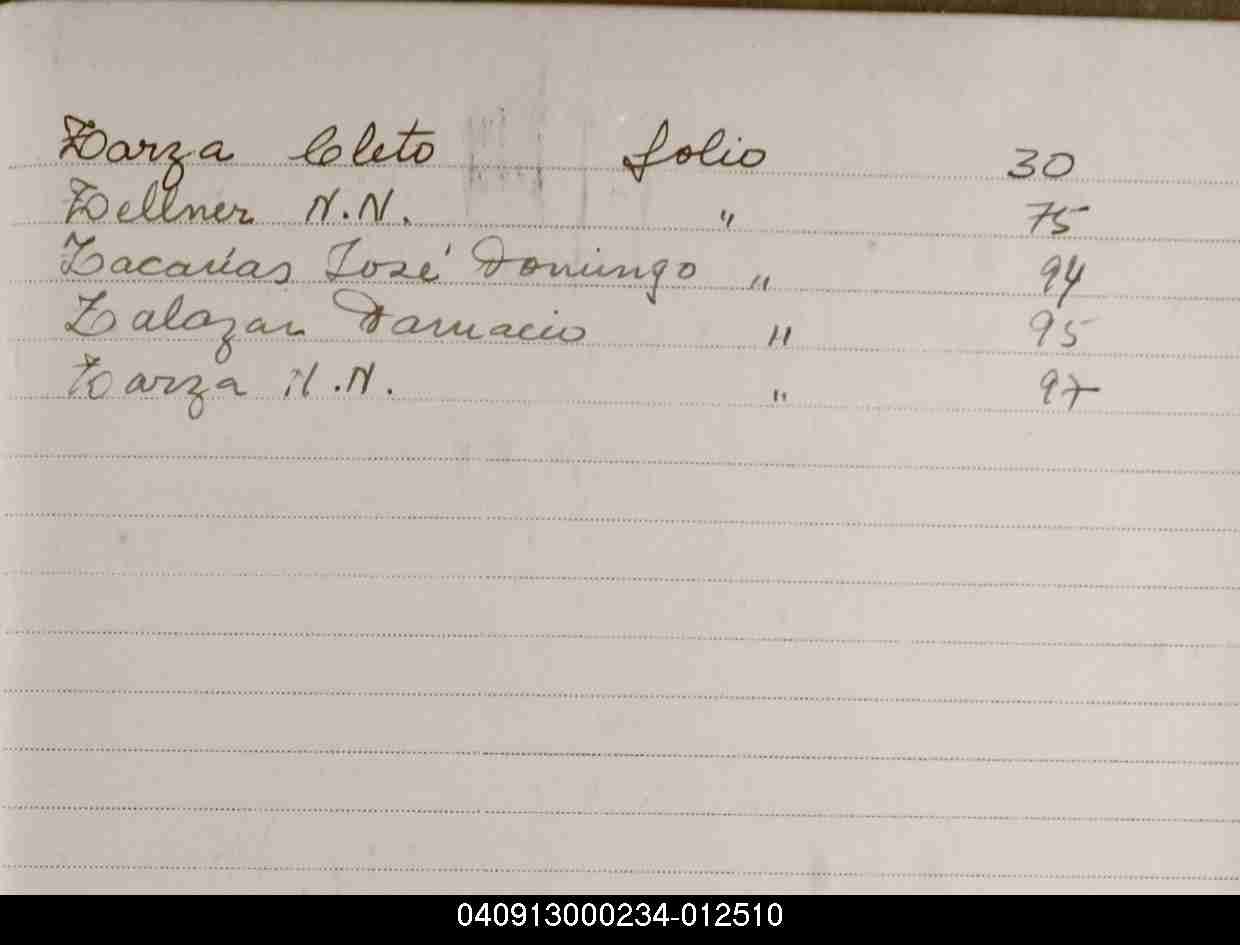 Zarza Cleto folio 30
Zellner N.N. " 75
Zacarías José Domingo " 94
Zalazar Damacio " 95
Zarza N.N. " 97
040913000234-012510